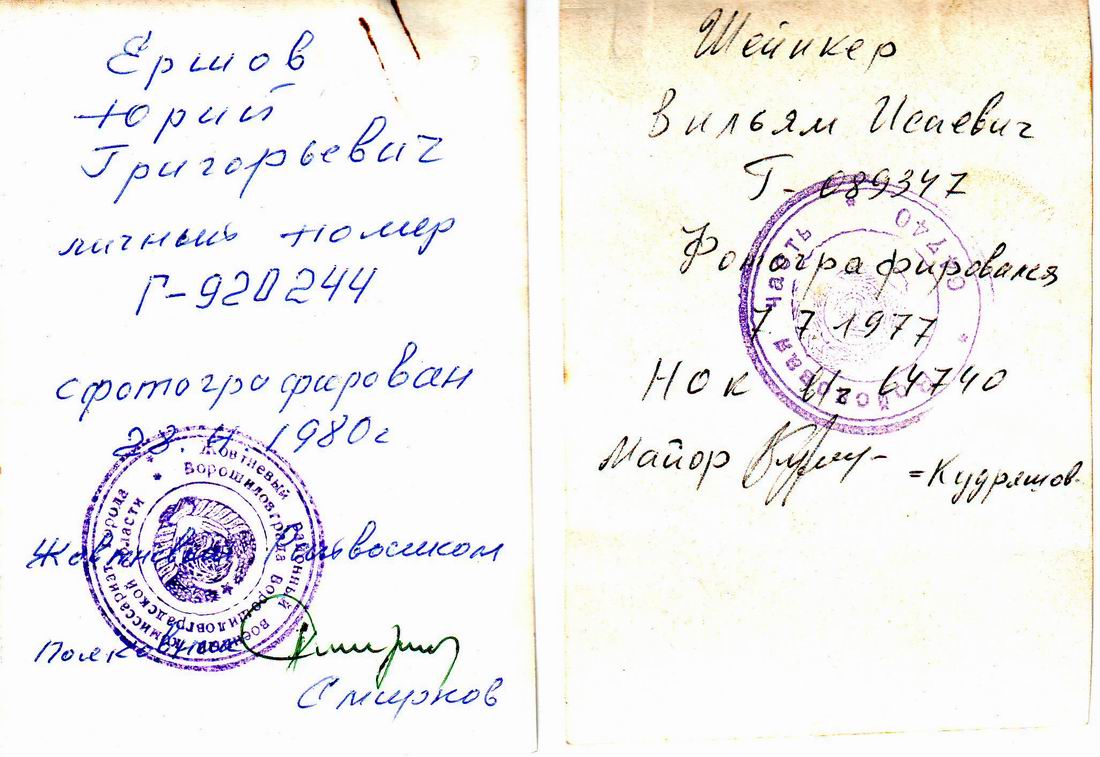 Ершов
Юрий
Григорьевич
личный номер
Г-920244
сфотографирован
28. 11. 1980г
Жовтневый Райвоенком
Полковник
Смирнов
Жовтневый районный военный комиссариат города
Ворошиловграда Ворошиловградской области
Шейнкер
Вильям Исаевич
Г- 089347
Фотографировался
7.7.1977
Нок в/ч 64740
Майор
=Кудряшов
войсковая часть
64740